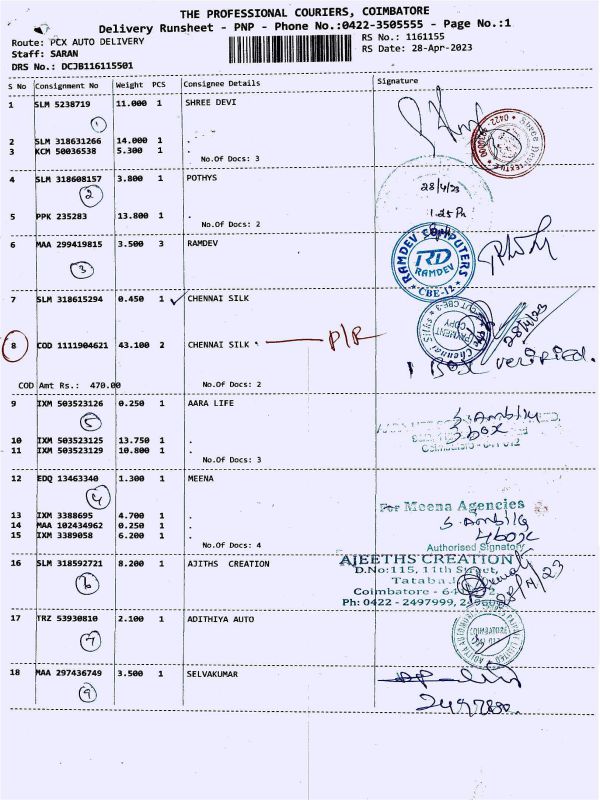 THE PROFESSIONAL COURIERS, COIMBATORE
Delivery Runsheet - PNP - Phone No.:0422-3505555 - Page No.:1
Route: PCX AUTO DELIVERY RS No.: 1161155
Staff: SARAN RS Date: 28-Apr-2023
DRS No.: DCJB116115501
S No Consignment No Weight PCS Consignee Details Signature
1 SLM 5238719 11.000 1 SHREE DEVI
1
2 SLM 318631266 14.000 1 .
3 KCM 50036538 5.300 1 .
No.Of Docs: 3
4 SLM 318608157 3.800 1 POTHYS
2 28/4/23
5 PPK 235283 13.800 1 . 1.25 Pm
No.Of Docs: 2
6 MAA 299419815 3.500 3 RAMDEV
3
RAMDEV COMPUTERS
RD
RAMDEV
* CBE-12 *
7 SLM 318615294 0.450 1 ✓ CHENNAI SILK
28/4/23
8 COD 1111904621 43.100 2 CHENNAI SILK . P/R
1 Box verified.
COD Amt Rs.: 470.00 No.Of Docs: 2
9 IXM 503523126 0.250 1 AARA LIFE
S. Ambily
3 box
10 IXM 503523125 13.750 1 .
11 IXM 503523129 10.800 1 .
No.Of Docs: 3
12 EDQ 13463340 1.300 1 MEENA
4
For Meena Agencies
13 IXM 3388695 4.700 1 .
S. Ambily
14 MAA 102434962 0.250 1 .
4 box
15 IXM 3389058 6.200 1 .
No.Of Docs: 4
Authorised Signatory
16 SLM 318592721 8.200 1 AJITHS CREATION
6
AJEETHS CREATION
D.No:115, 11th Street,
Coimbatore - 64
Ph: 0422 - 2497999,
28/4/23
17 TRZ 53930810 2.100 1 ADITHIYA AUTO
7
COIMBATORE
18 MAA 297436749 3.500 1 SELVAKUMAR
9